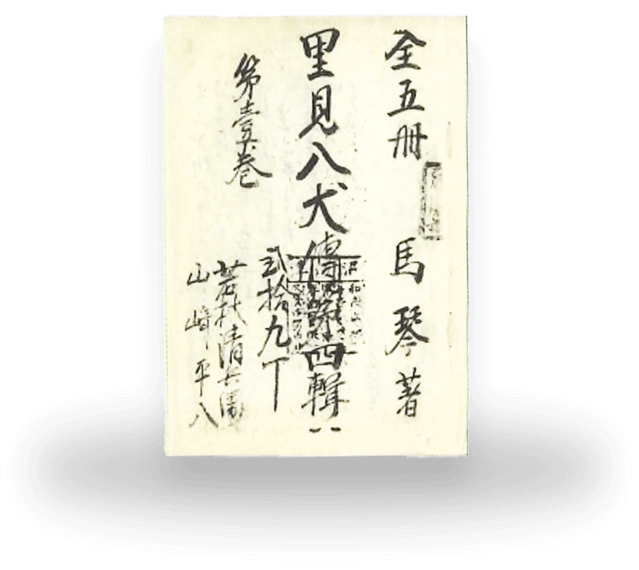 全五冊 馬琴著
里見八犬傳第四輯
第壹巻
弐拾九丁
若林清兵衛
山崎平八